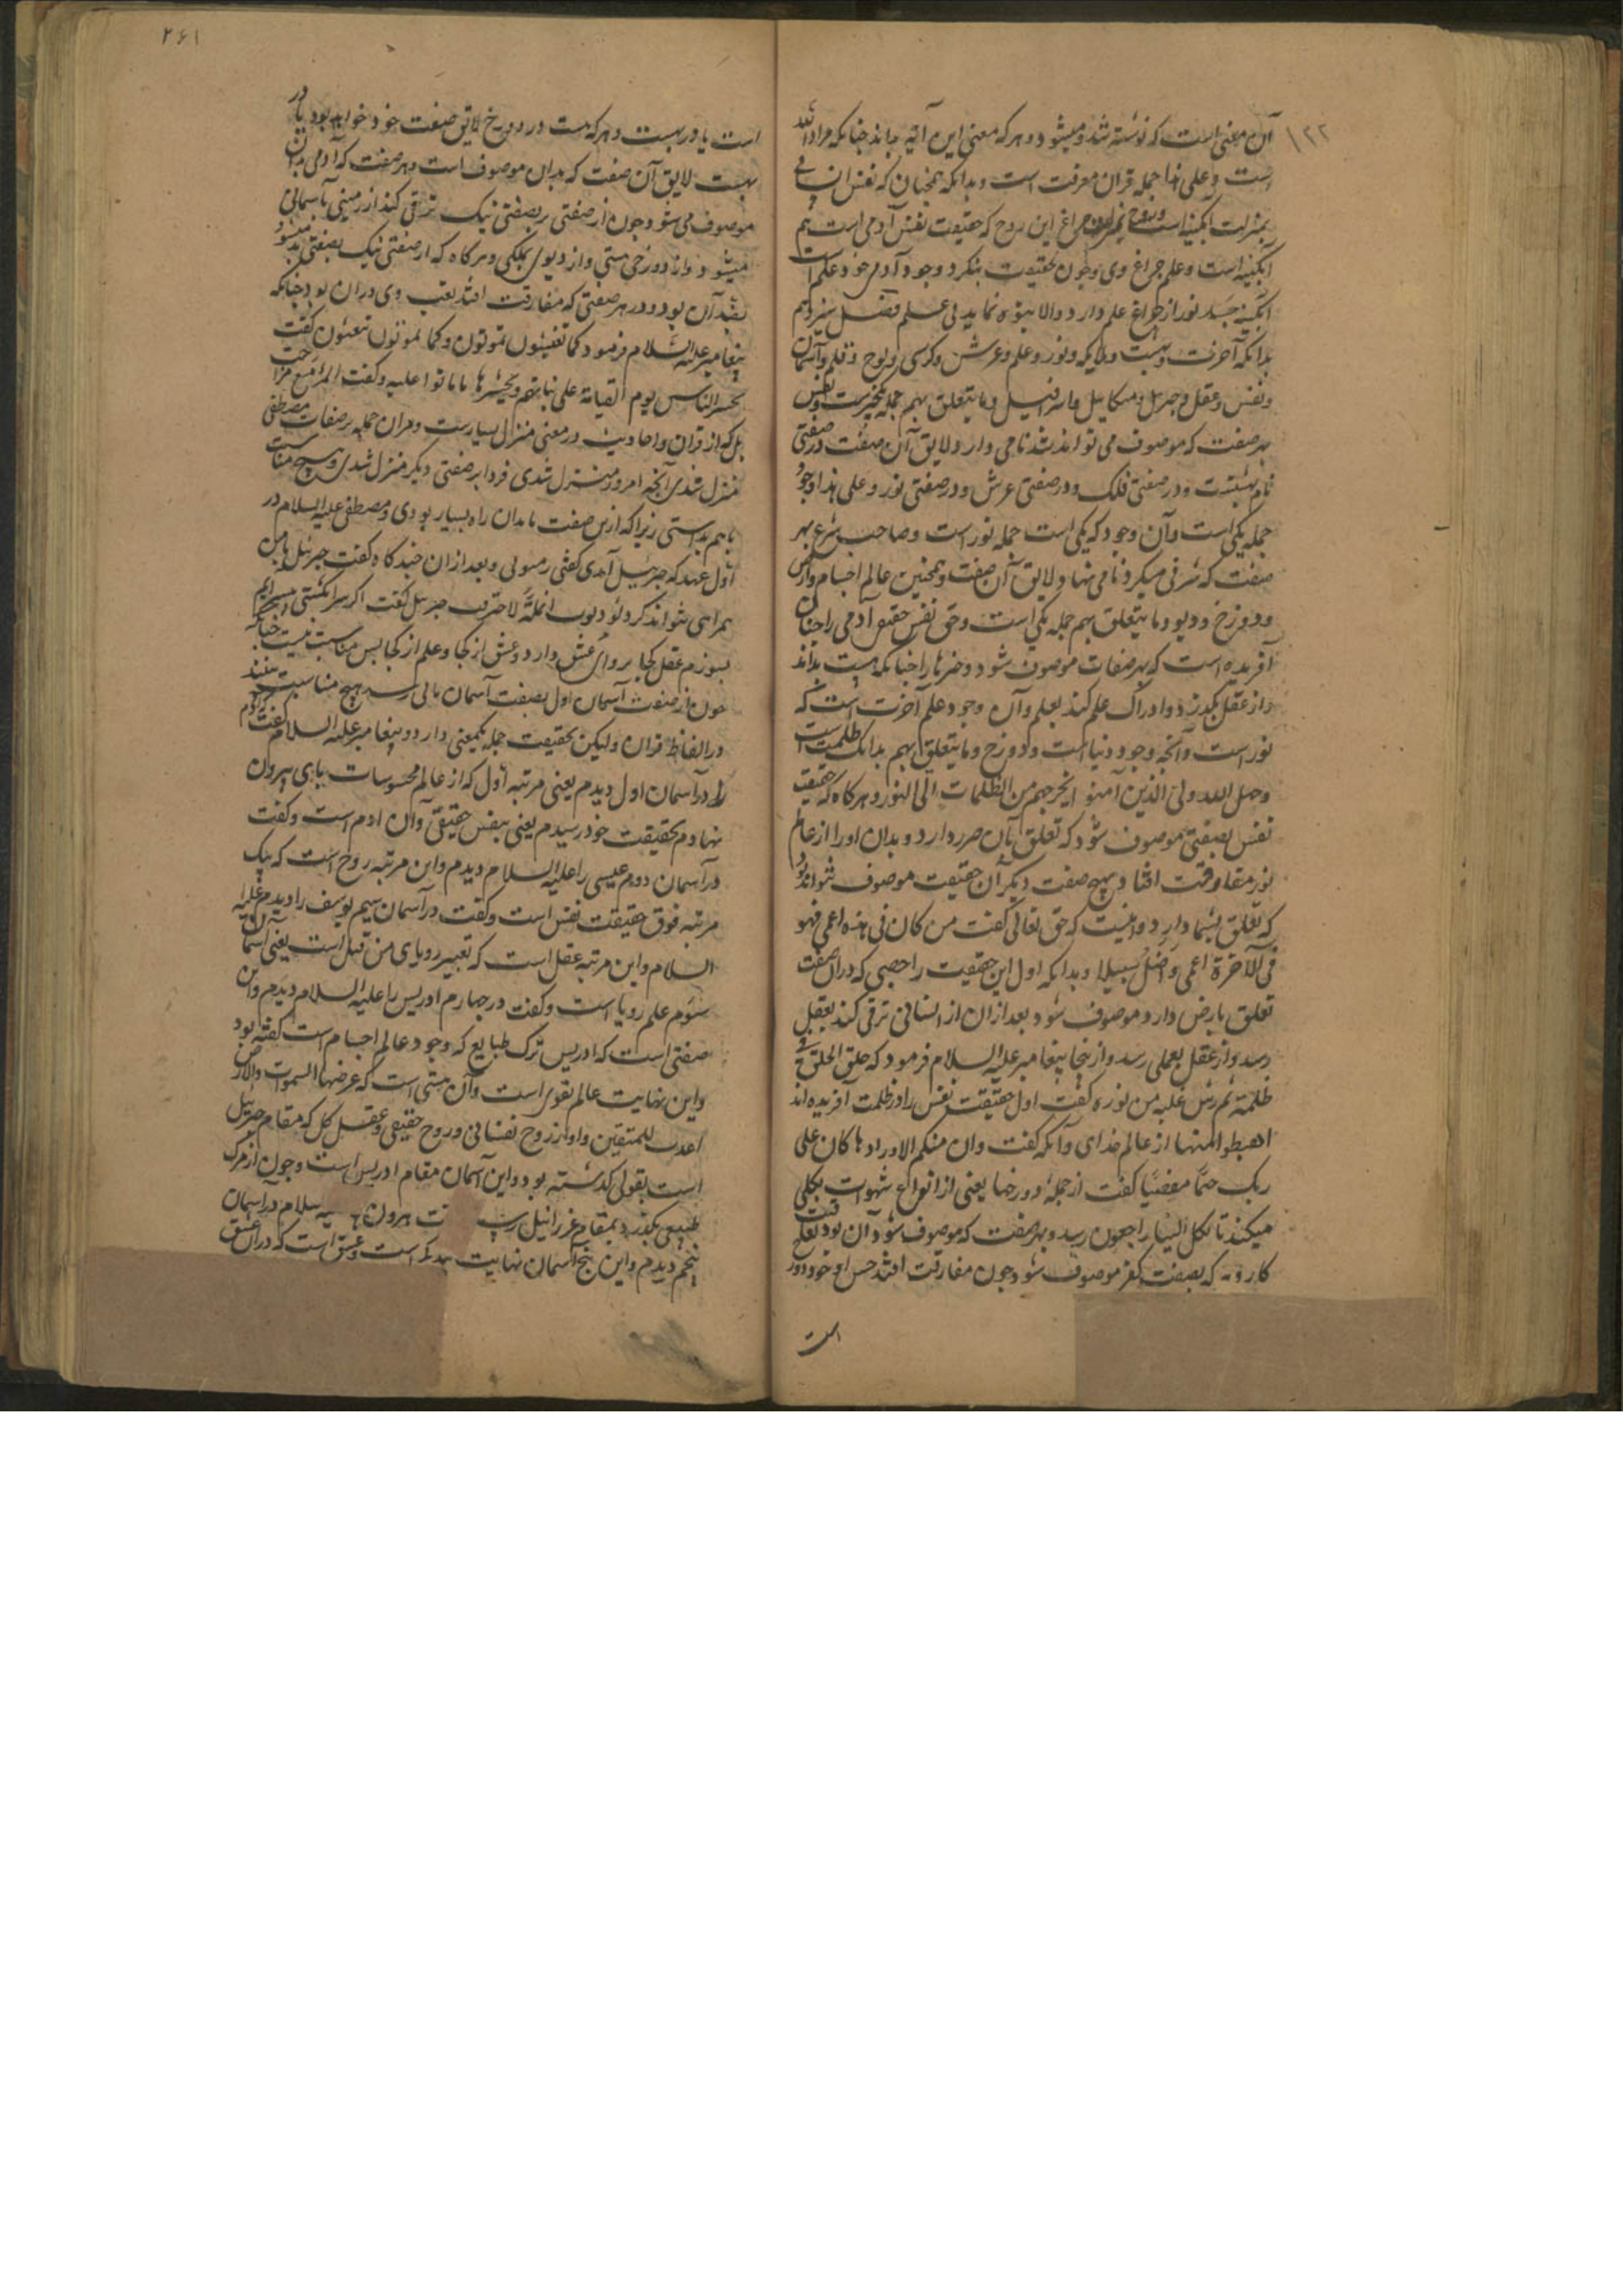 ۱۲۲
آن معنی است که نوشته شد و میشود و هر که معنی این آیه بداند چنانکه مراد الله
است و علی هذا جمله قران معرفت است و بدانکه همچنان که نفس انسانی
بمنزلت آبکینه است و روح چراغ این روح که حقیقت نفس آدمی است هم
آبکینه است و علم چراغ وی و چون بحقیقت بنکرد وجود آدمی خود علم است
آبکینه جسد نور از چراغ علم دارد و الا بتوه نماید بی علم
بدانکه آخرت و بهشت و ملایکه و نور و علم و عرش و کرسی و لوح و قلم و آسمان
و نفس و عقل و جبریل و میکاییل و اسرافیل و ما یتعلق بهم جمله یکچیزست و نفس
بهر صفت که موصوف می تواند شد نامی دارد لایق آن صفت در صفتی
نام بهشتست و در صفتی فلک و در صفتی عرش و در صفتی نور و علی هذا وجود
جمله یکی است و آن وجود که یکی است جمله نور است و صاحب شرع بهر
صفت که شرفی میکرد نامی نهاد لایق آن صفت و همچنین عالم اجسام و ارض
و دوزخ و دیو و ما یتعلق بهم جمله یکی است و حق نفس حقیقی آدمی را چنان
آفریده است که بهر صفات موصوف شود و چیزها را چنانکه هست بداند
و از عقل بکذرد و ادراک علم کند بعلم و آن وجود علم آخرت است که
نور است و آنچه وجود دنیا است و دوزخ و ما یتعلق بهم بدانک ظلمت است
و حق الله ولی الذین آمنوا یخرجهم من الظلمات الی النور و هر کاه که حقیقت
نفس بصفتی موصوف شود که تعلق بآن ضرر دارد و بدان او را از عالم
نور مفارقت افتد و بهیچ صفت دیکر آن حقیقت موصوف نتواند بود
که تعلق بسما دارد و اینست که حق تعالی کفت من کان فی هذه اعمی فهو
فی الآخرة اعمی و اضل سبیلا و بدانکه اول این حقیقت را حصی که در آن صفت
تعلق بارض دارد موصوف شود بعد از ان از انسانی ترقی کند بعقل
رسد و از عقل بعلمی رسد و از ینجا پیغامبر علیه السلام فرمود که خلق الخلق فی
ظلمة ثم رش علیه من نوره کفت اول حقیقت نفس را در ظلمت آفریده اند
اهبطوا منها از عالم خدای و آنکه کفت و ان منکم الا واردها کان علی
ربک حتما مقضیا کفت از جمله دوزخها یعنی از انواع شهوات بکلی
میکند تا لکل الینا راجعون رسد و بهر صفت که موصوف شود آن بود
کار و نه که بصفت کفر موصوف شود چون مفارقت افتد حس او خود در
است
۲۶۱
است یا در بهشت و هر که هست در دوزخ لایق صفت خود خواهد بود یا در
بهشت لایق آن صفت که بدان موصوف است و هر صفت که آدمی بدان
موصوف می شود چون از صفتی بر بصفتی نیک ترقی کند از زمینی بآسمانی
میشود و از دوزخی بهشتی و از دیوی بملکی و هر کاه که از صفتی نیک بصفتی بد میشود
بضد آن بود و در هر صفتی که مفارقت افتد بعث وی در ان بود چنانکه
پیغامبر علیه السلام فرمود کما تعیشون تموتون و کما تموتون تبعثون کفت
یحشر الناس یوم القیامة علی نیاتهم و یحشرها ما ماتوا علیه و کفت المرء مع من احب
بل که از قران و احادیث در معنی منزل بسیارست و مر ان جمله بر صفات مصطفی
منزل شدی آنچه امروز منزل شدی فردا بر صفتی دیکر منزل شدی و هیچ مناسبت
با هم نداستی زیرا که از ین صفت تا بدان راه بسیار بودی و مصطفی علیه السلام در
اول عهد که جبرئیل آمدی کفتی رسولی و بعد از ان چند کاه کفت جبرئیل با من
همراهی نتواند کرد لو دنوت انملة لاحترقت جبریل کفت اکر سر انکشتی
بسوزم عقل کجا پروای عشق دارد و عشق از کجا و علم از کجا پس مناسبت نیست چنانکه
چون از صفت آسمان اول بصفت آسمان هیچ مناسبت نبیند
در الفاظ قران و لیکن بحقیقت جمله یکمعنی دارد و پیغامبر علیه السلام کفت آدم
را در آسمان اول دیدم یعنی مرتبه اول که از عالم محسوسات پای بیرون
نهادم بحقیقت خود رسیدم یعنی بنفس حقیقی و آن ادم است و کفت
در آسمان دوم عیسی را علیه السلام دیدم و این مرتبه روح است که یک
مرتبه فوق حقیقت نفس است و کفت در آسمان سیم یوسف را دیدم علیه
السلام و این مرتبه عقل است که تعبیر رویای من قبل است یعنی آسمان
سئوم علم رویا است و کفت در چهارم ادریس را علیه السلام دیدم و این
صفتی است که ادریس ترک طبایع که وجود عالم اجسام است کفته بود
و این نهایت عالم تقوی است و آن بهشتی است که عرضها السموات والارض
اعدت للمتقین و او از روح نفسانی و روح حقیقی و عقل کل که مقام جبرییل
است بقولی کذشته بود و این آسمان مقام ادریس است و چون از مرک
طبیعی بکذرد بمقام عزرائیل هرون علیه السلام در آسمان
پنجم دیدم و این پنج آسمان نهایت است و عشق است که در ان عشق